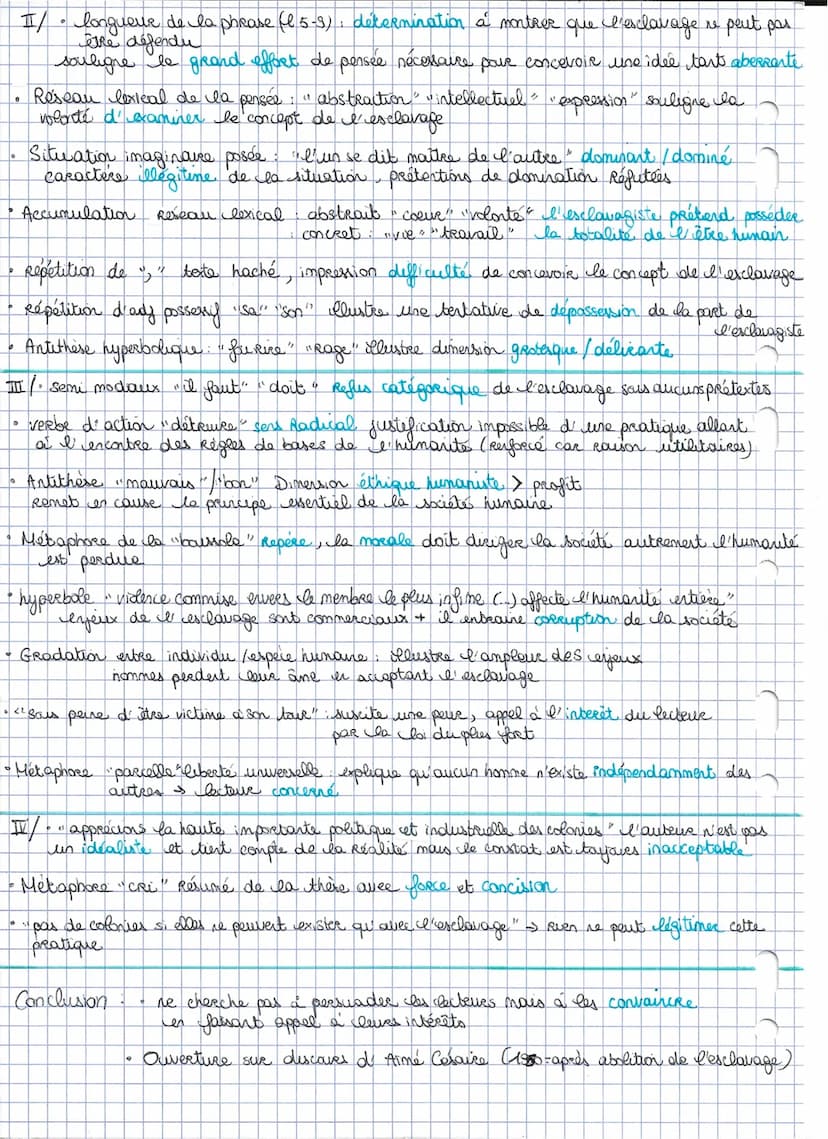 II/ • longueur de la phrase (l 5-9) : détermination à montrer que l'esclavage ne peut pas
être défendu
souligne le grand effort de pensée nécessaire pour concevoir une idée tant aberrante
• Réseau lexical de la pensée : "abstraction" "intellectuel" "expression" souligne la
volonté d'examiner le concept de l'esclavage
• Situation imaginaire posée : "l'un se dit maître de l'autre" dominant / dominé
caractère illégitime de la situation, prétentions de domination Réfutées
• Accumulation Réseau lexical : abstrait "coeur" "volonté" l'esclavagiste prétend posséder
: concret : "vie" "travail" la totalité de l'être humain
• répétition de ";" texte haché, impression difficulté de concevoir le concept de l'esclavage
• Répétition d'adj possessif "sa" "son" illustre une tentative de dépossession de la part de
l'esclavagiste
• Antithèse hyperbolique : "furire" "Rage" illustre dimension grotesque / délirante
III/• semi modaux "il faut" "doit" Refus catégorique de l'esclavage sans aucuns prétextes
• verbe d'action "détruire" sens Radical justification impossible d'une pratique allant
à l'encontre des Règles de bases de l'humanité (renforcé car raison utilitaires)
• Antithèse "mauvais"/"bon" Dimension éthique humaniste > profit
Remet en cause le principe essentiel de la société humaine
• Métaphore de la "boussole" Repère, la morale doit diriger la société autrement l'humanité
est perdue
• hyperbole "violence commise envers le membre le plus infime (..) affecte l'humanité entière"
enjeux de l'esclavage sont commerciaux + il entraine corruption de la société
• Gradation entre individu / espèce humaine : illustre l'ampleur des enjeux
hommes perdent leur âme en acceptant l'esclavage
• "Sous peine d'être victime à son tour" : suscite une peur, appel à l'intérêt du lecteur
par la loi du plus fort
• Métaphore "parcelle" liberté universelle : explique qu'aucun homme n'existe indépendamment des
autres → lecteur concerné
IV/ • "apprécions la haute importante politique et industrielle des colonies" l'auteur n'est pas
un idéaliste et tient compte de la Réalité mais le constat est toujours inacceptable
• Métaphore "cri" Résumé de la thèse avec force et concision
• "pas de colonies si elles ne peuvent exister qu'avec l'esclavage" → Rien ne peut légitimer cette
pratique
Conclusion : • ne cherche pas à persuader les lecteurs mais à les convaincre
en faisant appel à leurs intérêts
• Ouverture sur discours d'Aimé Césaire (après abolition de l'esclavage)